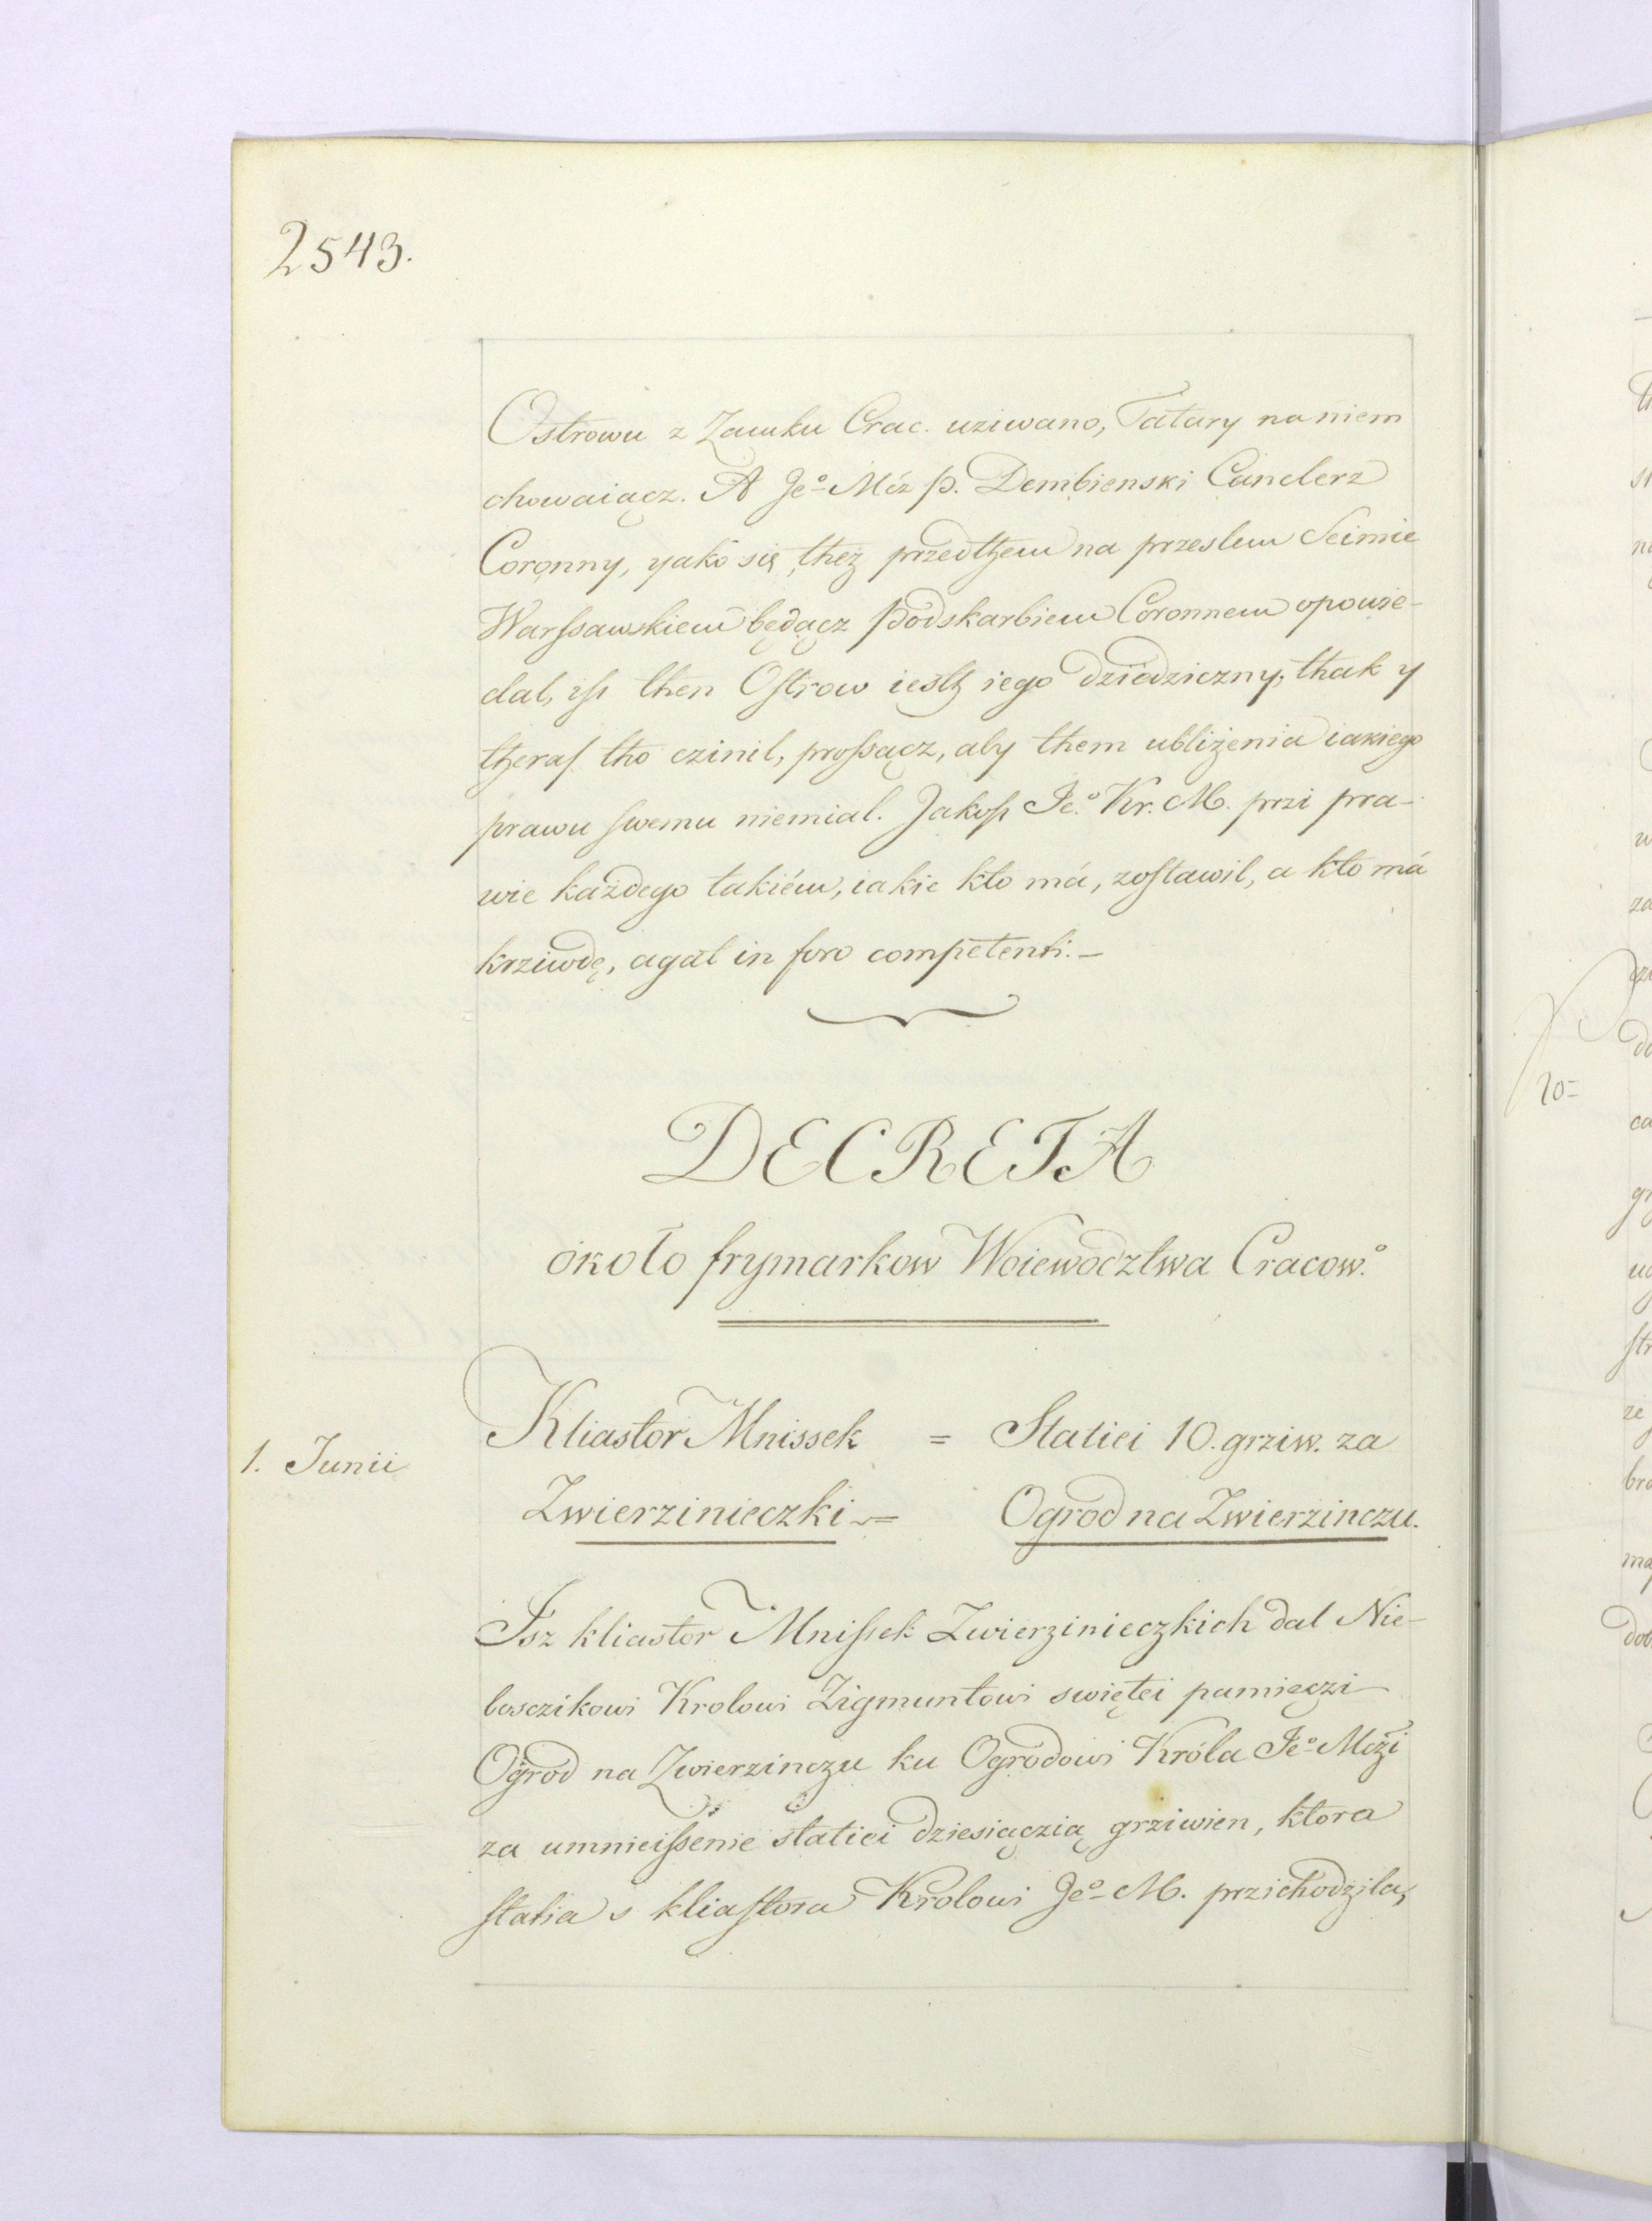 2543.
Ostrowu z Zamku Crac. uziwano, Tatary na niem
chowaiącz. A Jeº Mcz p. Dembienski Canclerz
Coronny, yako się thez przedthem na przeslem Seimie
Warssawskiem będącz Podskarbiem Coronnem opowie-
dal, iss then Ostrow iesth iego dziedziczny, thak y
theras tho czinil, prossącz, aby them ubliżenia iakiego
prawu swemu niemial. Jakoss Jeº Kr. M. przi pra-
wie każdego takiém, iakie kto má, zostawil, a kto má
krziwdę, agat in foro competenti. –
DECRETA
około frymarkow Woiewodztwa Cracow.º
1. Junii
Kliastor Mnissek = Statiei 10. grziw. za
Zwierzinieczki = Ogrod na Zwierzinczu.
Isz kliastor Mnissek Zwierzinieczkich dal Nie-
bosczikowi Krolowi Zigmuntowi swiętei pamięczi
Ogrod na Zwierzinczu ku Ogrodowi Króla Jeº Mczi
za umnieissenie statiei dziesiączią grziwien, ktora
statia s kliastora Krolowi Jeº M. przichodzila,